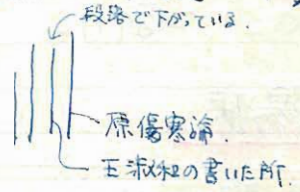 段落で下がっている.
原傷寒論.
王淑和の書いた所.